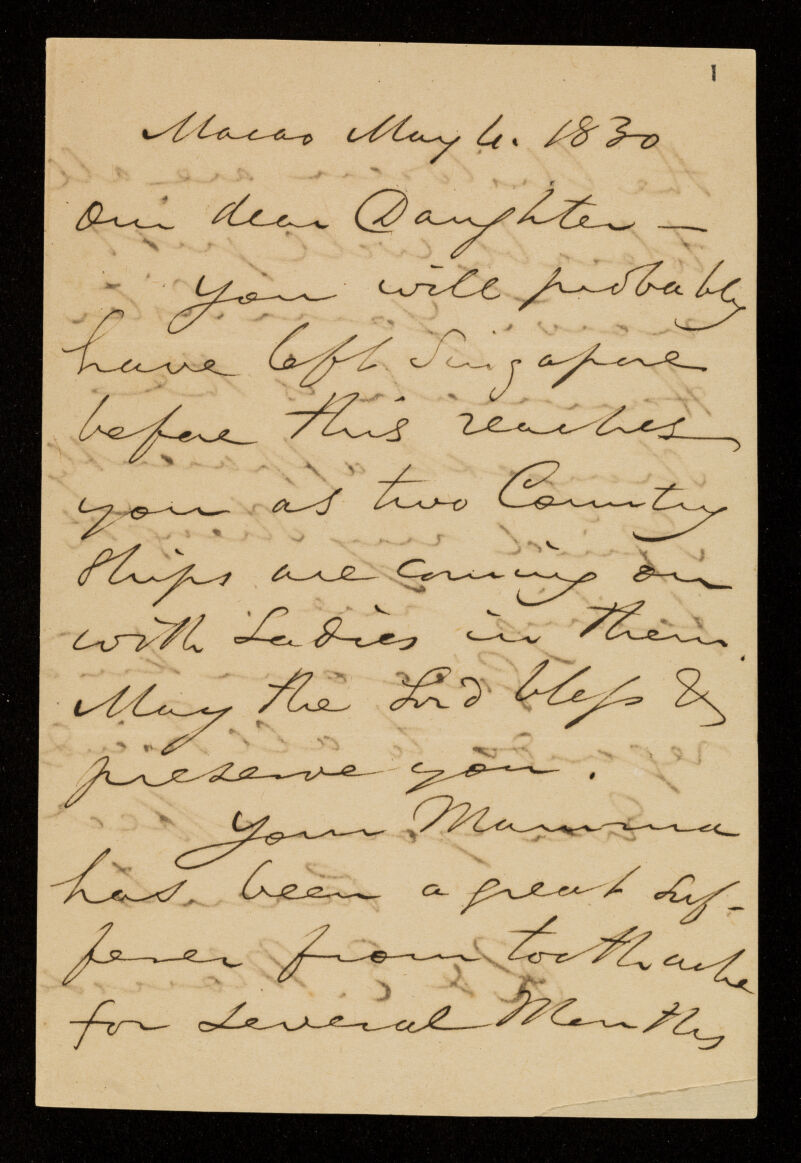 1
Macao May 4. 1830
Our dear Daughter —
You will probably
have left Singapore
before this reaches
you as two Country
Ships are coming on
with Ladies in them.
May the Lord bless &
preserve you.
Your Mamma
has been a great suf-
ferer from toothache
for several Months